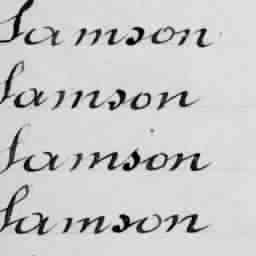 Samson
Samson
Samson
Samson